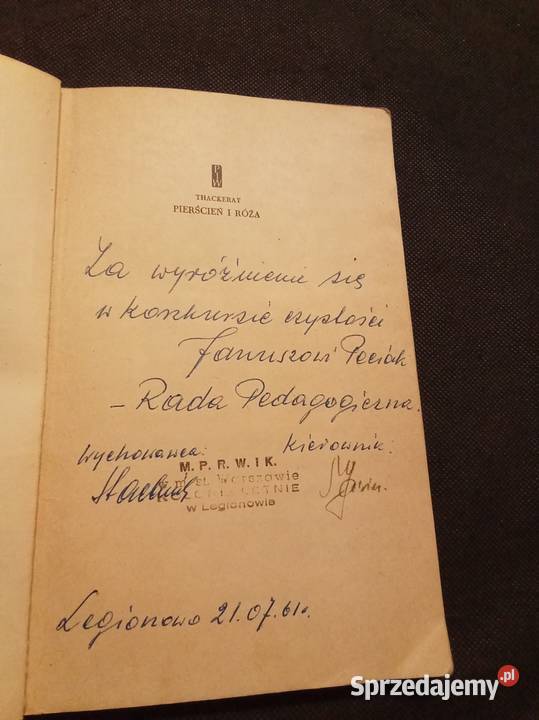 THACKERAY
PIERŚCIEŃ I RÓŻA
Za wyróżnienie się
w konkursie czystości
Januszowi Peciak
- Rada Pedagogiczna.
Wychowawca: Kierownik:
M. P. R. W. I K.
w m. st. Warszawie
KOLONIE LETNIE
w Legionowie
Legionowo 21.07.61r.
Sprzedajemy.pl